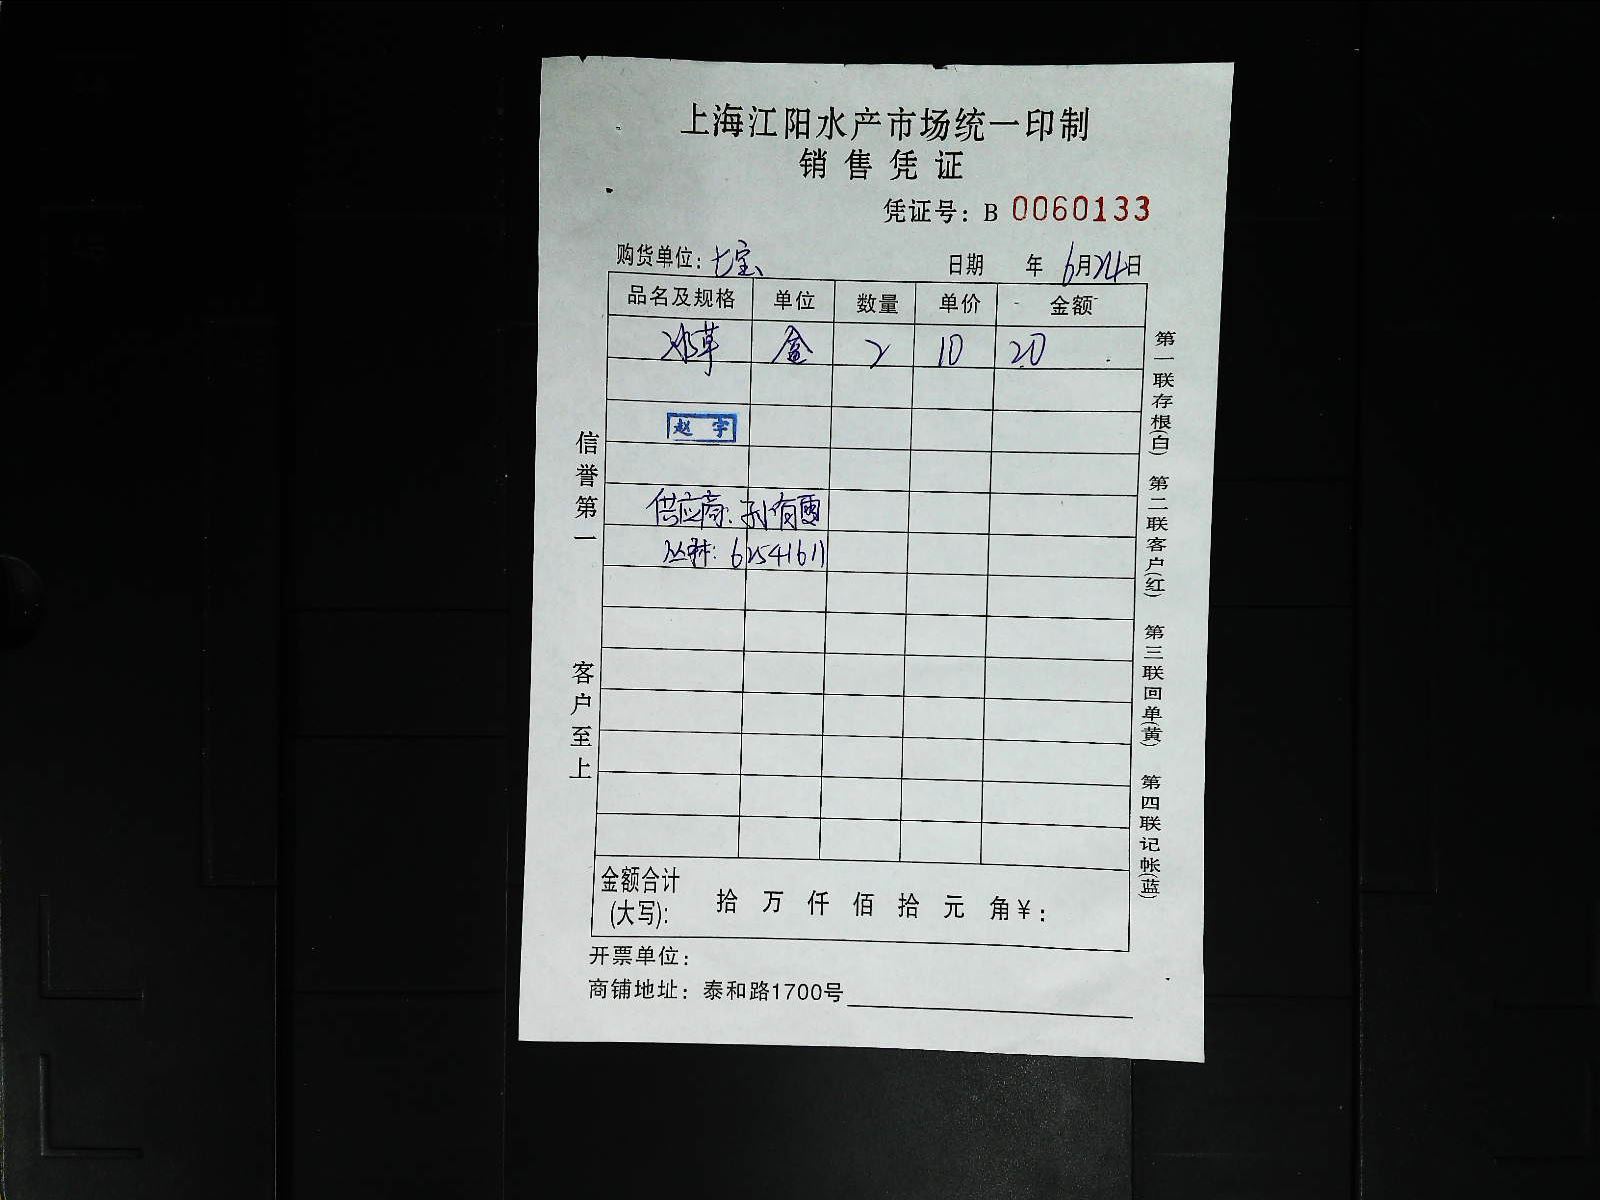 上海江阳水产市场统一印制
销售凭证
凭证号：B 0060133
购货单位：七宝 日期 年 6月24日
品名及规格 单位 数量 单价 金额
冰草 盒 2 10 20
赵宇
供应商：孙有雷
丛林：62541611
金额合计(大写)： 拾 万 仟 佰 拾 元 角 ¥：
开票单位：
商铺地址：泰和路1700号
信誉第一
客户至上
第一联存根(白) 第二联客户(红) 第三联回单(黄) 第四联记帐(蓝)